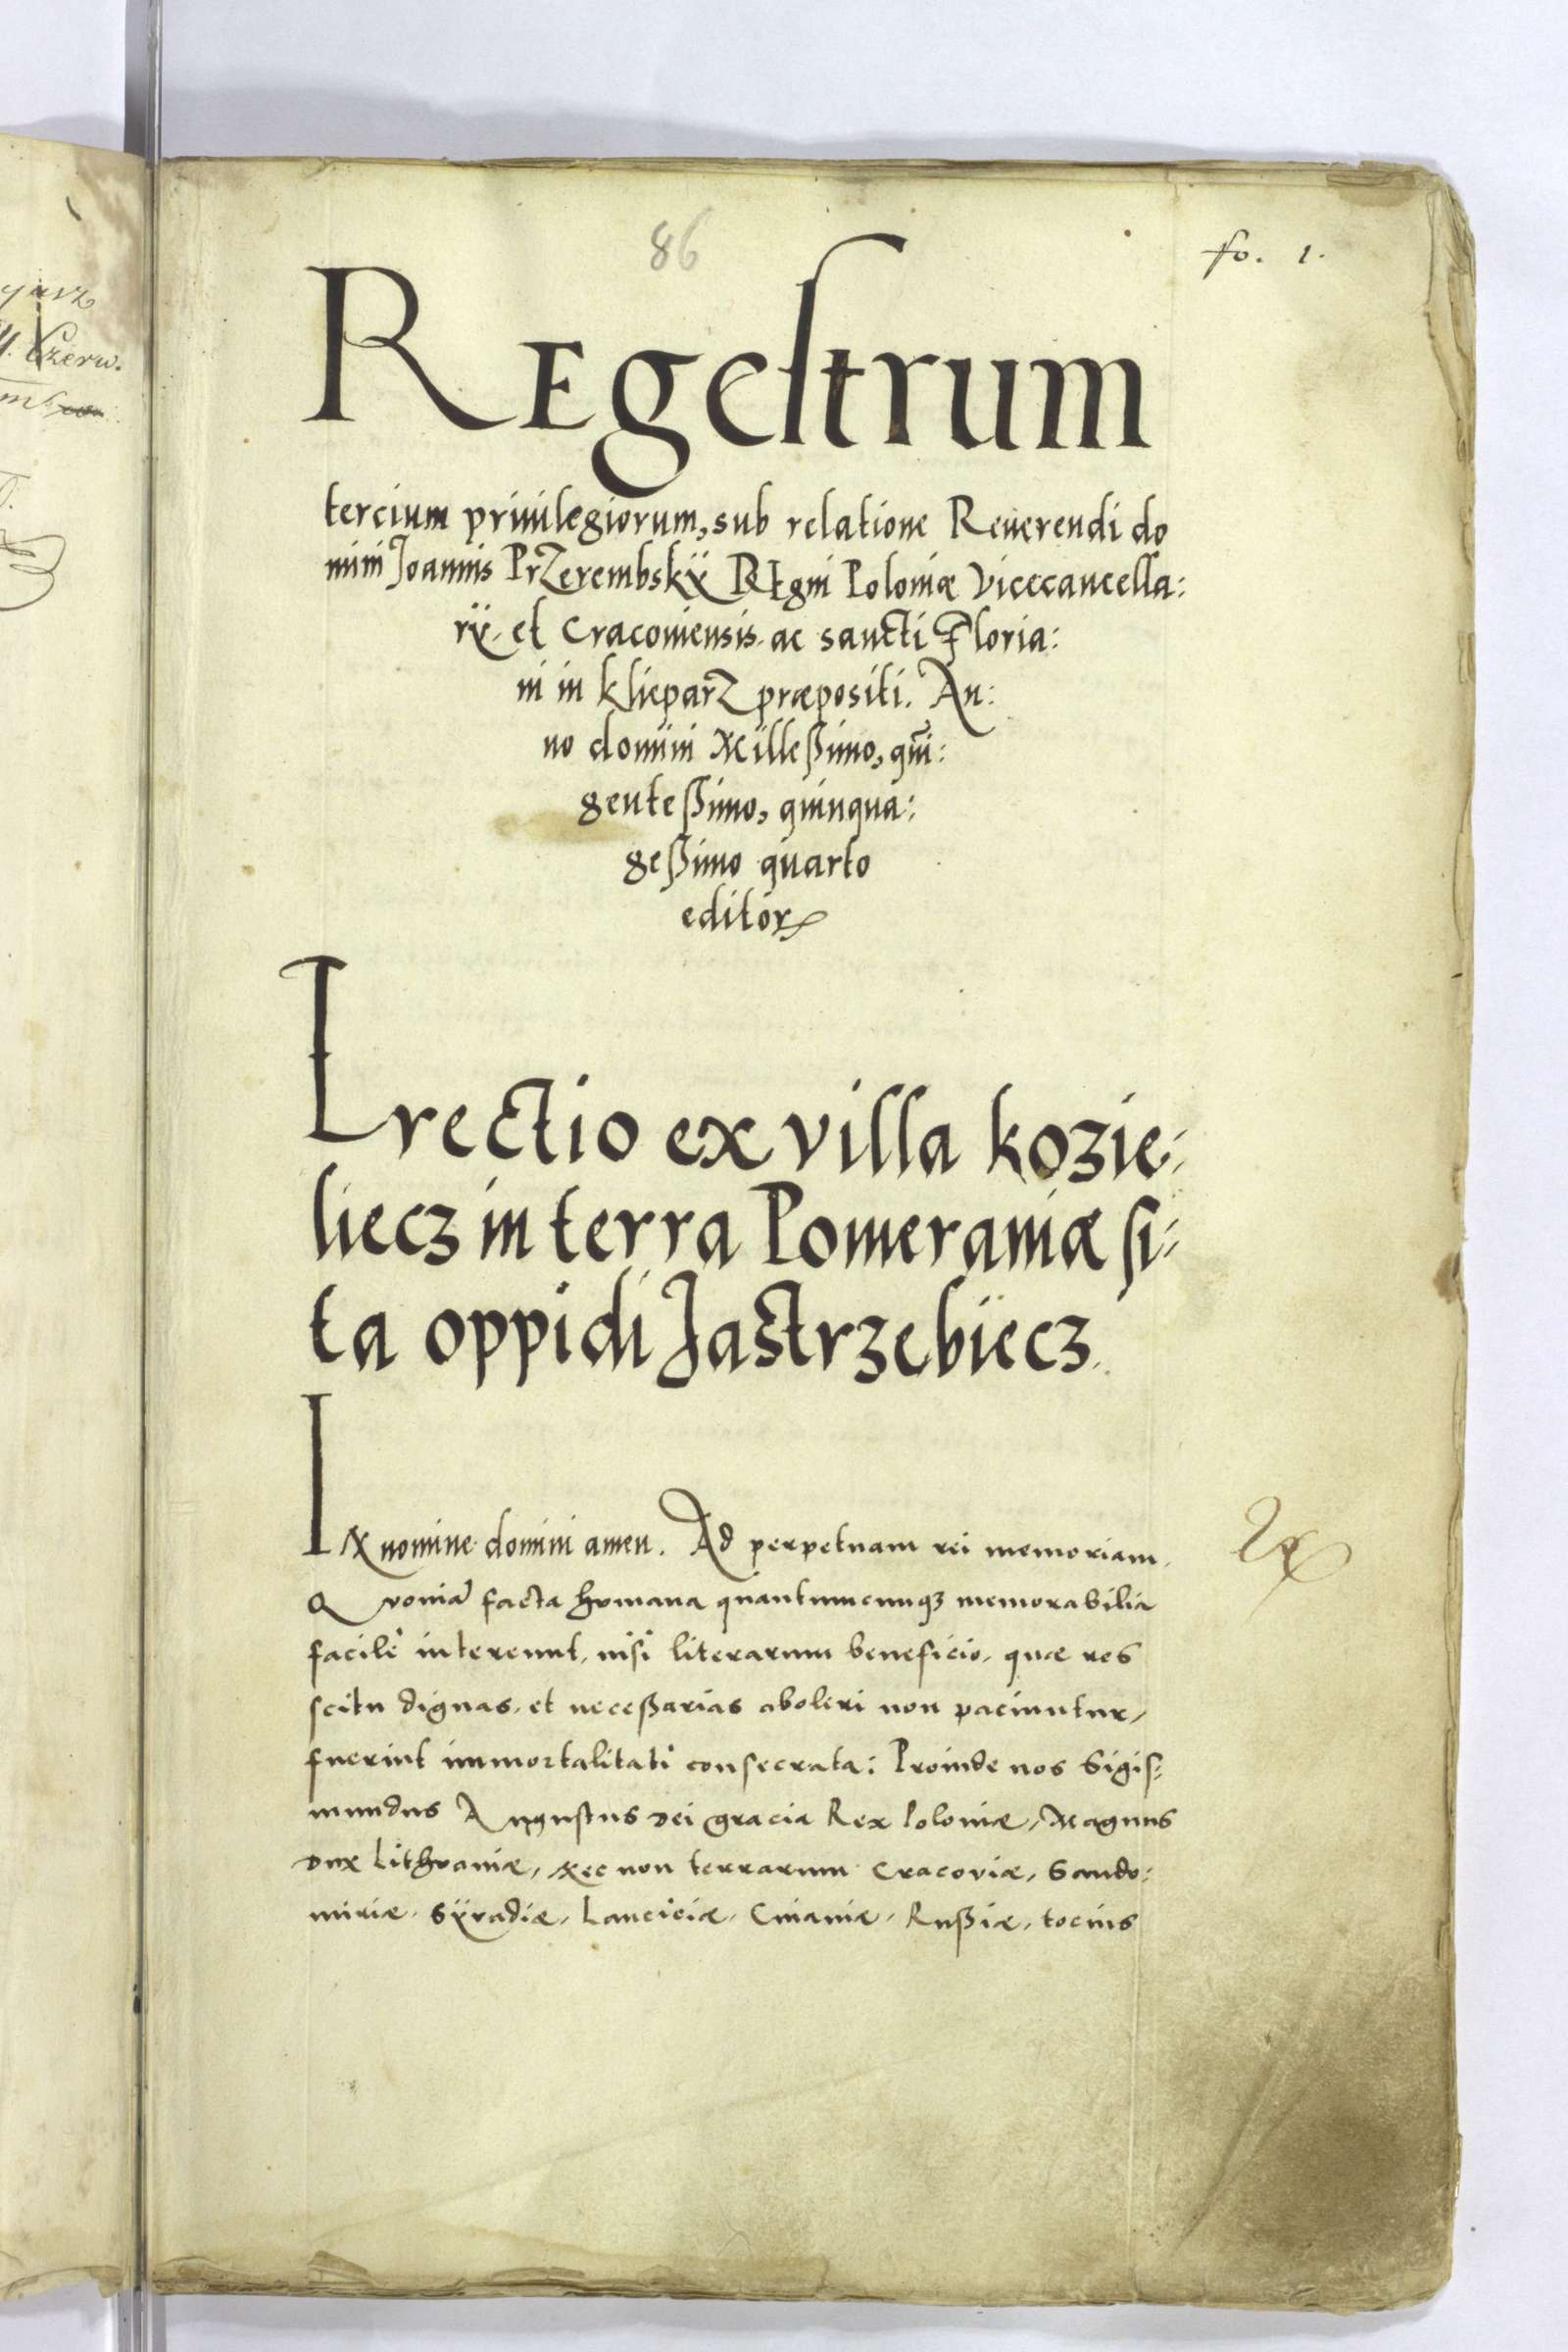 86
fo. 1.
REgestrum
tercium priuilegiorum, sub relatione Reuerendi do
mini Joannis PrZerembskÿ REgni Poloniæ Vicecancella:
rÿ. et Cracouiensis. ac sancti Floria:
ni in klieparZ præpositi. An:
no domini Millesßimo, qui̅:
gentesßimo, quinqua:
gesßimo quarto
editorꝝ
Erectio ex villa kozie:
liecz in terra Pomeraniæ si:
ta oppidi Jastrzebiecz.
IN nomine domini amen. Ad perpetuam rei memoriam.
Quonia̅ facta humana quantumcunqꝫ memorabilia
facile intereunt, nisi literarum beneficio, quæ res
scitu dignas, et necesßarias aboleri non paciuntur,
fuerint immortalitati consecrata: Proinde nos Sigis:
mundus Augustus dei gracia Rex Poloniæ, Magnus
dux Lithuaniæ, Nec non terrarum Cracoviæ, Sando:
miriæ, Sÿradiæ, Lanciciæ, Cuiauiæ, Rusßiæ, tocius
Czerw.